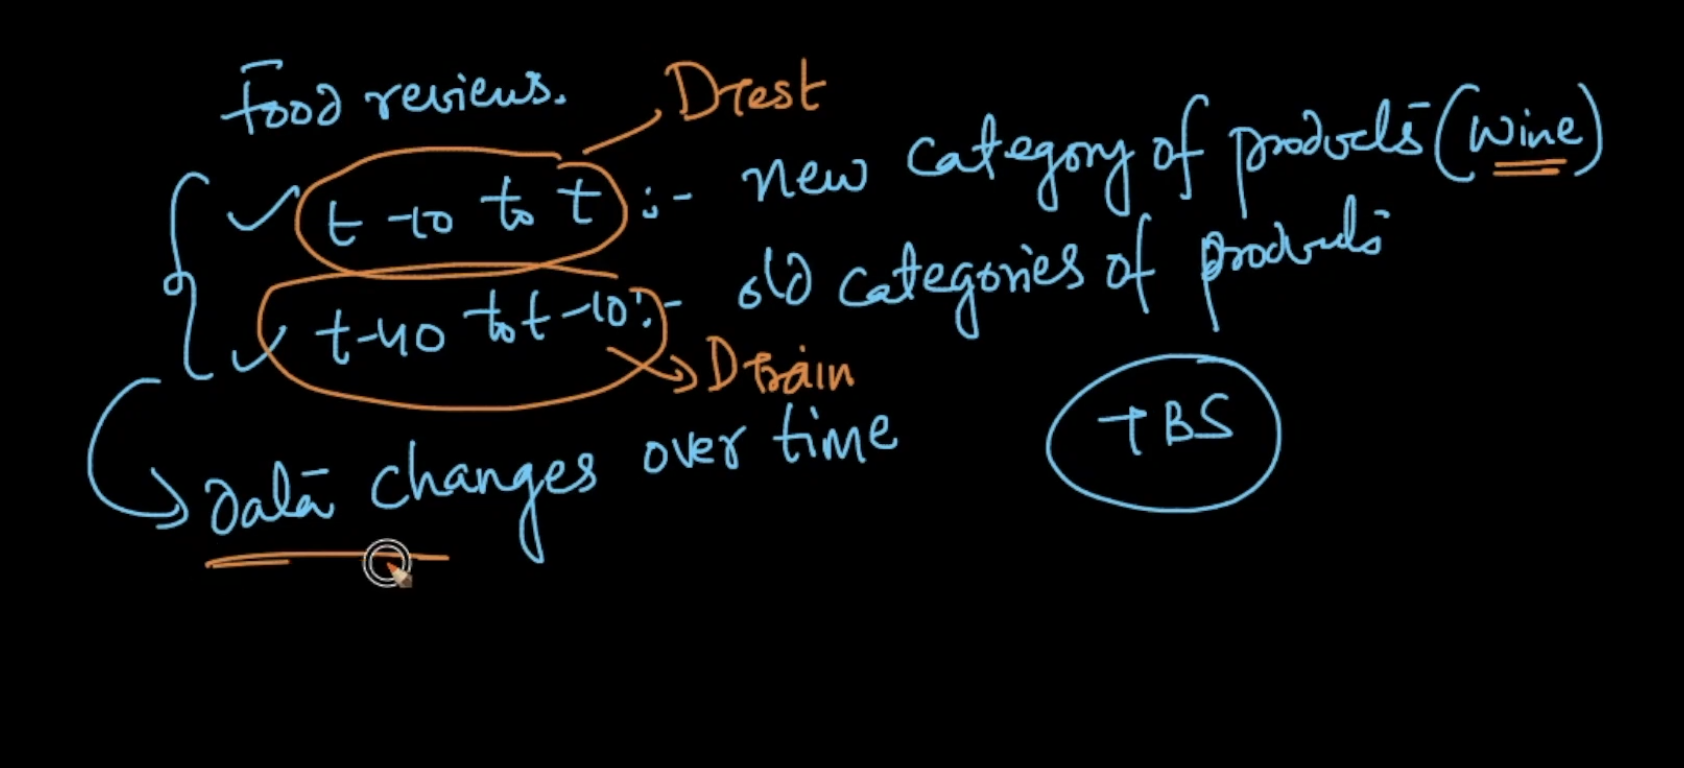 Food reviews.
Dtest
t-10 to t :- new category of products (wine)
t-40 to t-10 :- old categories of products
Dtrain
TBS
data changes over time